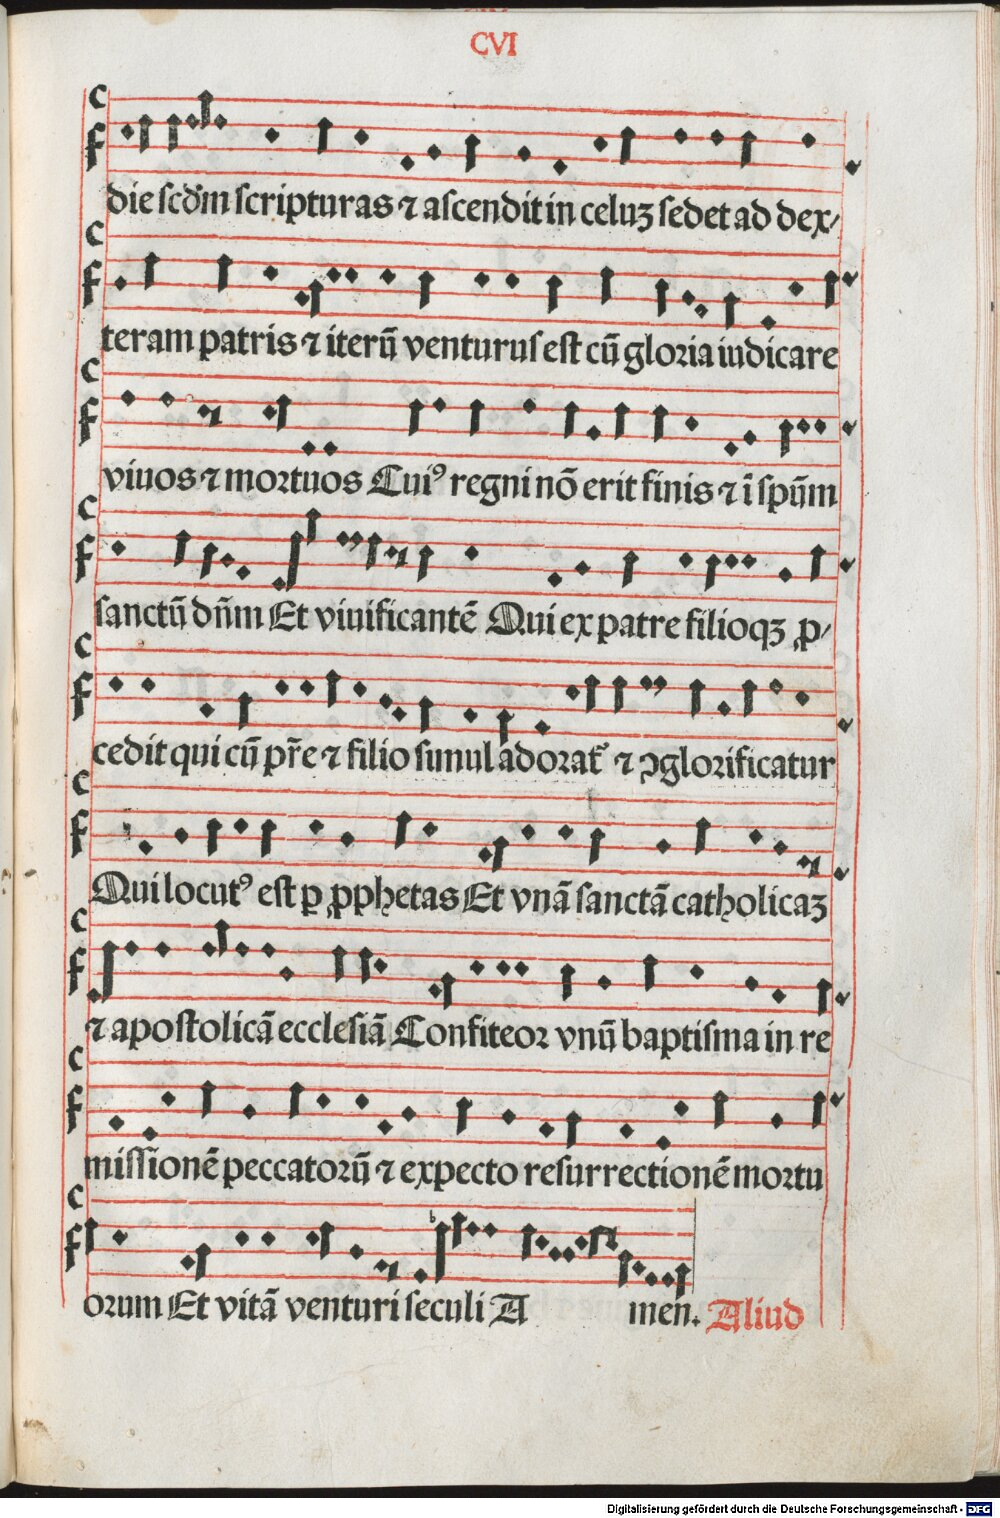 CVI
die scd̄m scripturas ⁊ ascendit in celuȝ sedet ad dex⸗
teram patris ⁊ iterū venturus est cū gloria iudicare
viuos ⁊ mortuos Cuiꝰ regni nō erit finis ⁊ ī spūm
sanctū dn̄m Et viuificantē Qui ex patre filioqȝ ꝓ⸗
cedit qui cū pr̄e ⁊ filio simul adorat᷑ ⁊ ꝯglorificatur
Qui locutꝰ est ꝑ ꝓphetas Et vnā sanctā catholicaȝ
⁊ apostolicā ecclesiā Confiteor vnū baptisma in re
missionē peccatorū ⁊ expecto resurrectionē mortu
orum Et vitā venturi seculi A men. Aliud
Digitalisierung gefördert durch die Deutsche Forschungsgemeinschaft - DFG